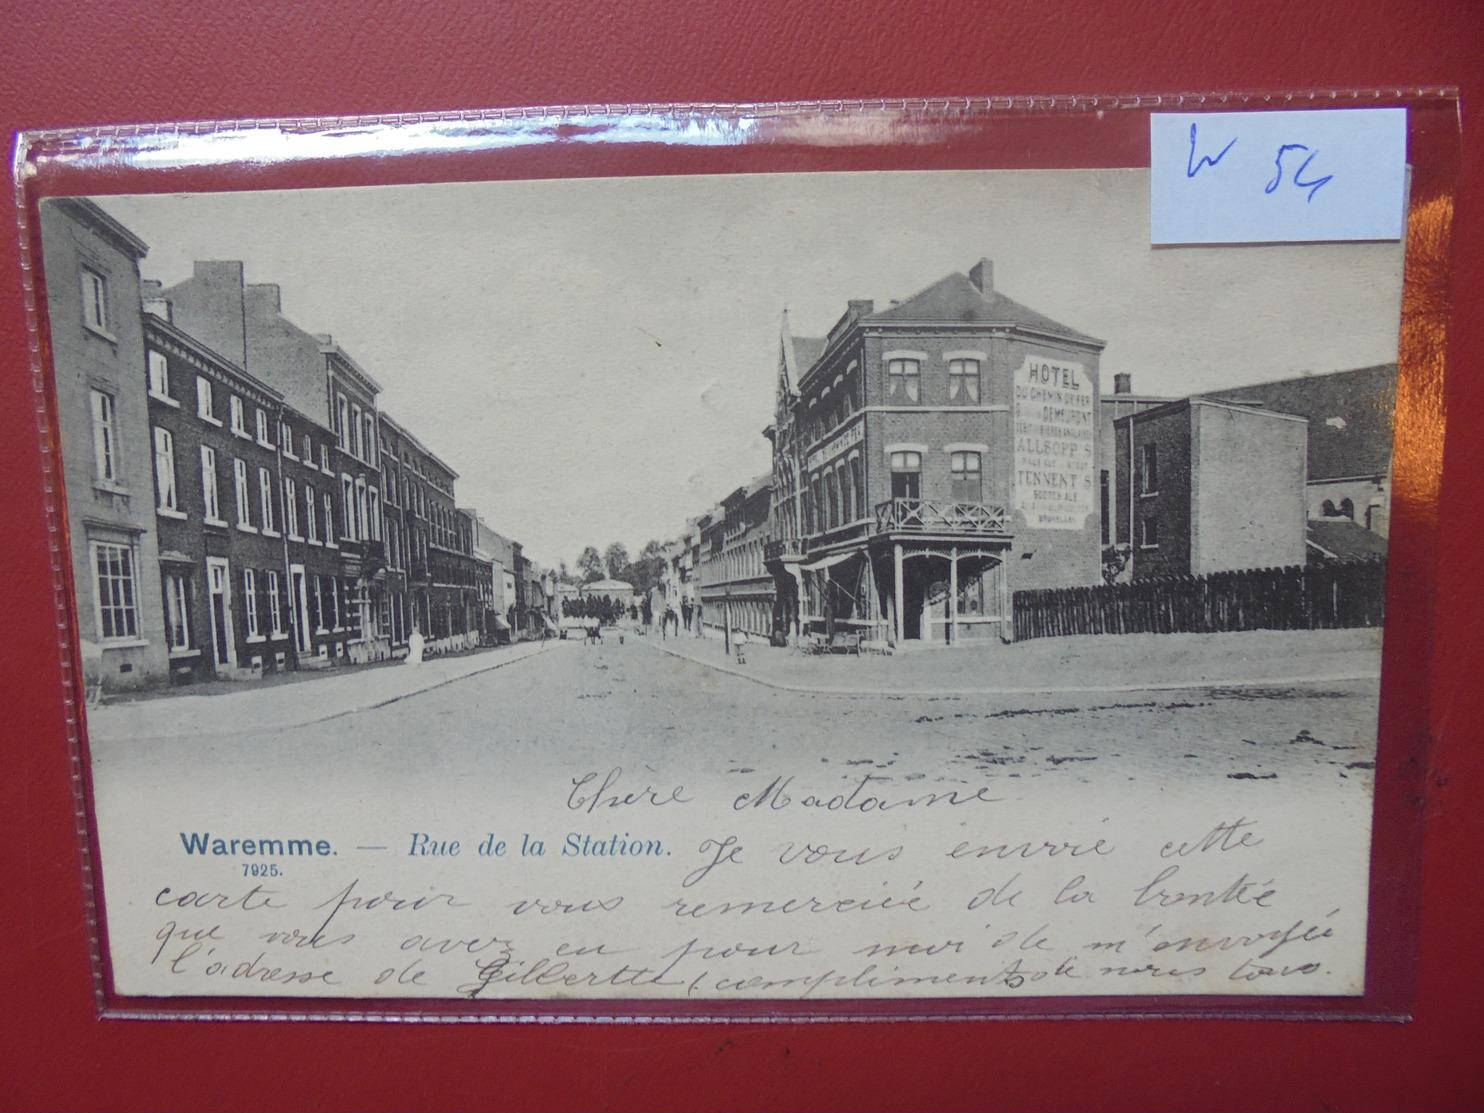 W 54
HOTEL
DU CHEMIN DE FER
ALLSOPP'S
TENNENT'S
SCOTCH ALE
BRUXELLES
Chère Madame
Waremme. — Rue de la Station. Je vous envoie cette
7925.
carte pour vous remerciée de la bontée
que vous avez eu pour moi de m'envoyée
l'adresse de Gilbertte (compliments de nous tous.